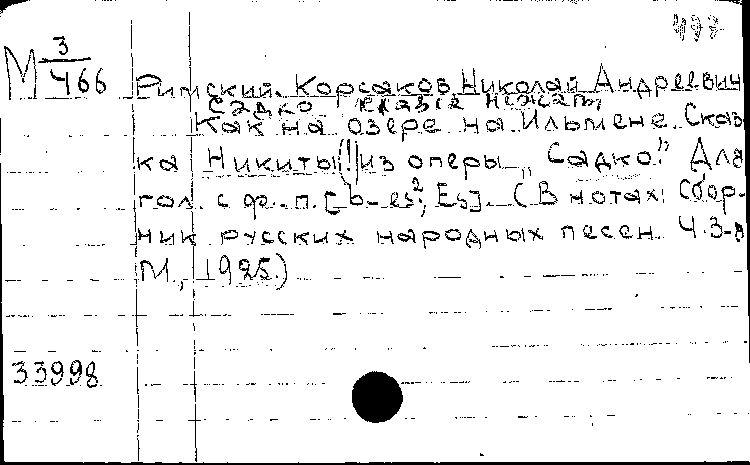 477
М 3/466
Римский-Корсаков, Николай Андреевич
Садко
Как на озере на Ильмене. Сказ-
ка Никиты(!) из оперы „Садко." Для
гол. с ф.-п. [b-es²; Es]. (В нотах: Сбор-
ник русских народных песен. Ч.3-я
М., 1925.)
33998